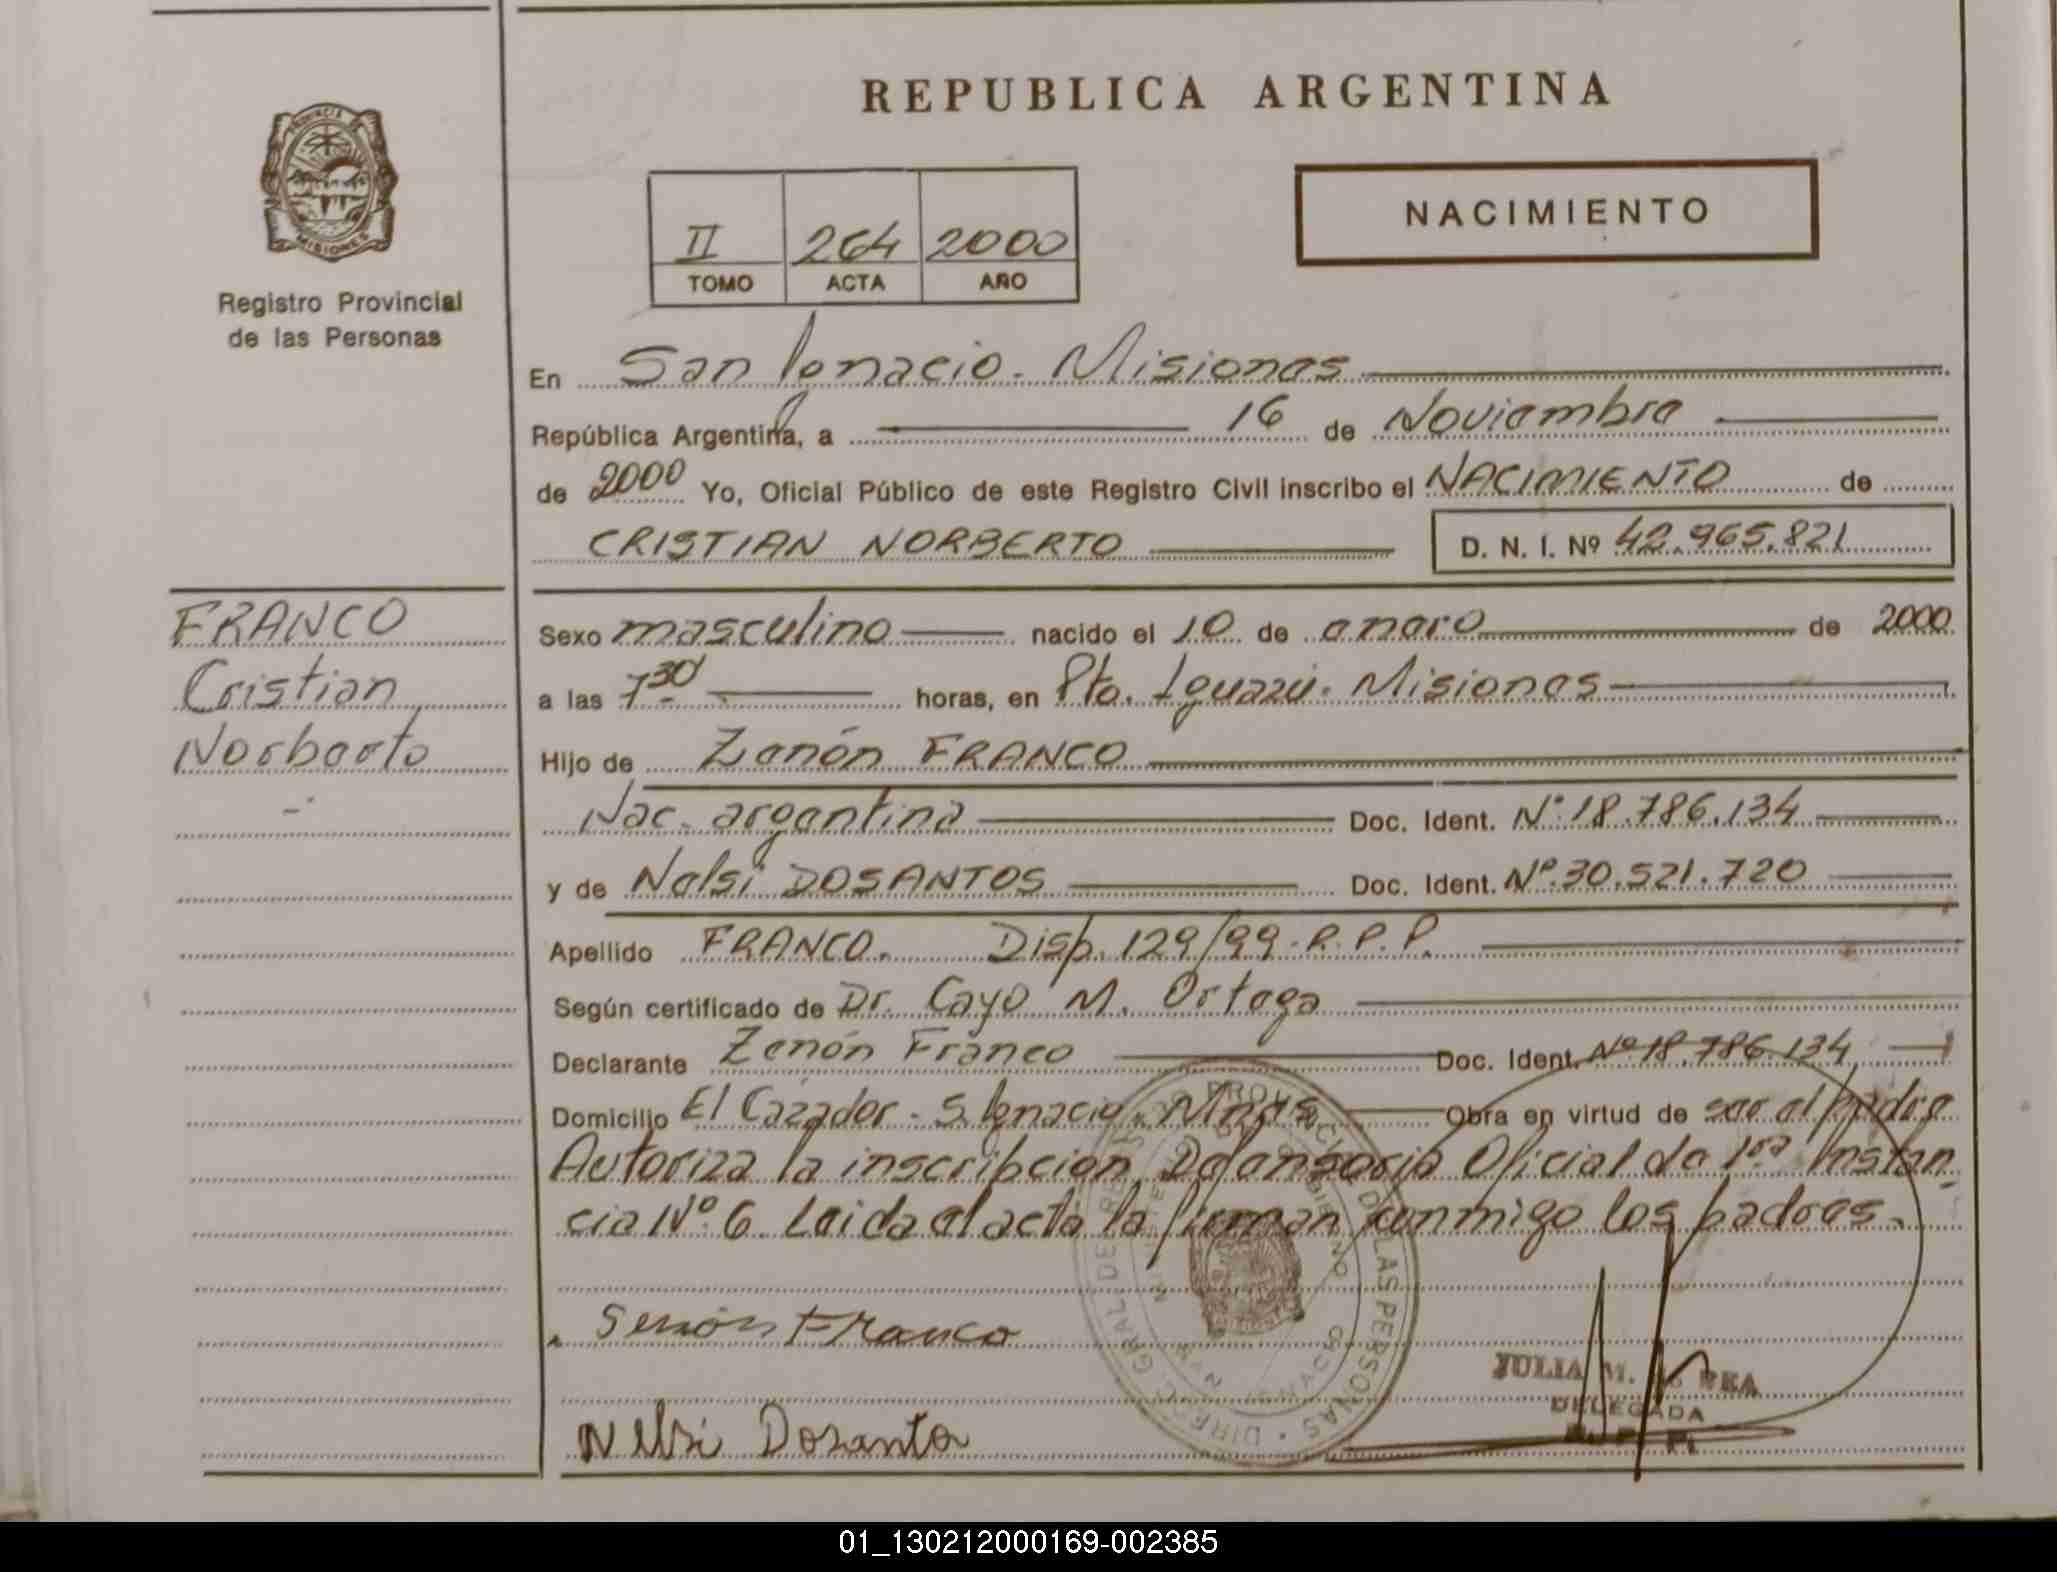 REPUBLICA ARGENTINA
PROVINCIA DE
MISIONES
Registro Provincial
de las Personas
II 264 2000
TOMO ACTA AÑO
NACIMIENTO
En San Ignacio - Misiones
República Argentina, a 16 de Noviembre
de 2000 Yo, Oficial Público de este Registro Civil inscribo el NACIMIENTO de
CRISTIAN NORBERTO D. N. I. Nº 42.965.821
FRANCO
Cristian
Norberto
Sexo masculino nacido el 10 de enero de 2000
a las 7 30 horas, en Pto. Iguazú - Misiones
Hijo de Zenón FRANCO
Nac. argentina Doc. Ident. Nº 18.786.134
y de Nelsi DOSANTOS Doc. Ident. Nº 30.521.720
Apellido FRANCO. Disp. 129/99 - R.P.P.
Según certificado de Dr. Cayo M. Ortega
Declarante Zenón Franco Doc. Ident. Nº 18.786.134
Domicilio El Cazador - S. Ignacio - Mnes Obra en virtud de ser el padre
Autoriza la inscripcion Defensoria Oficial de 1ra Instan-
cia Nº 6. Leida el acta la firman conmigo los padres.
Senón Franco
Nelsi Dosanto
JULIA M. REA
DELEGADA
R. P. P.
01_130212000169-002385